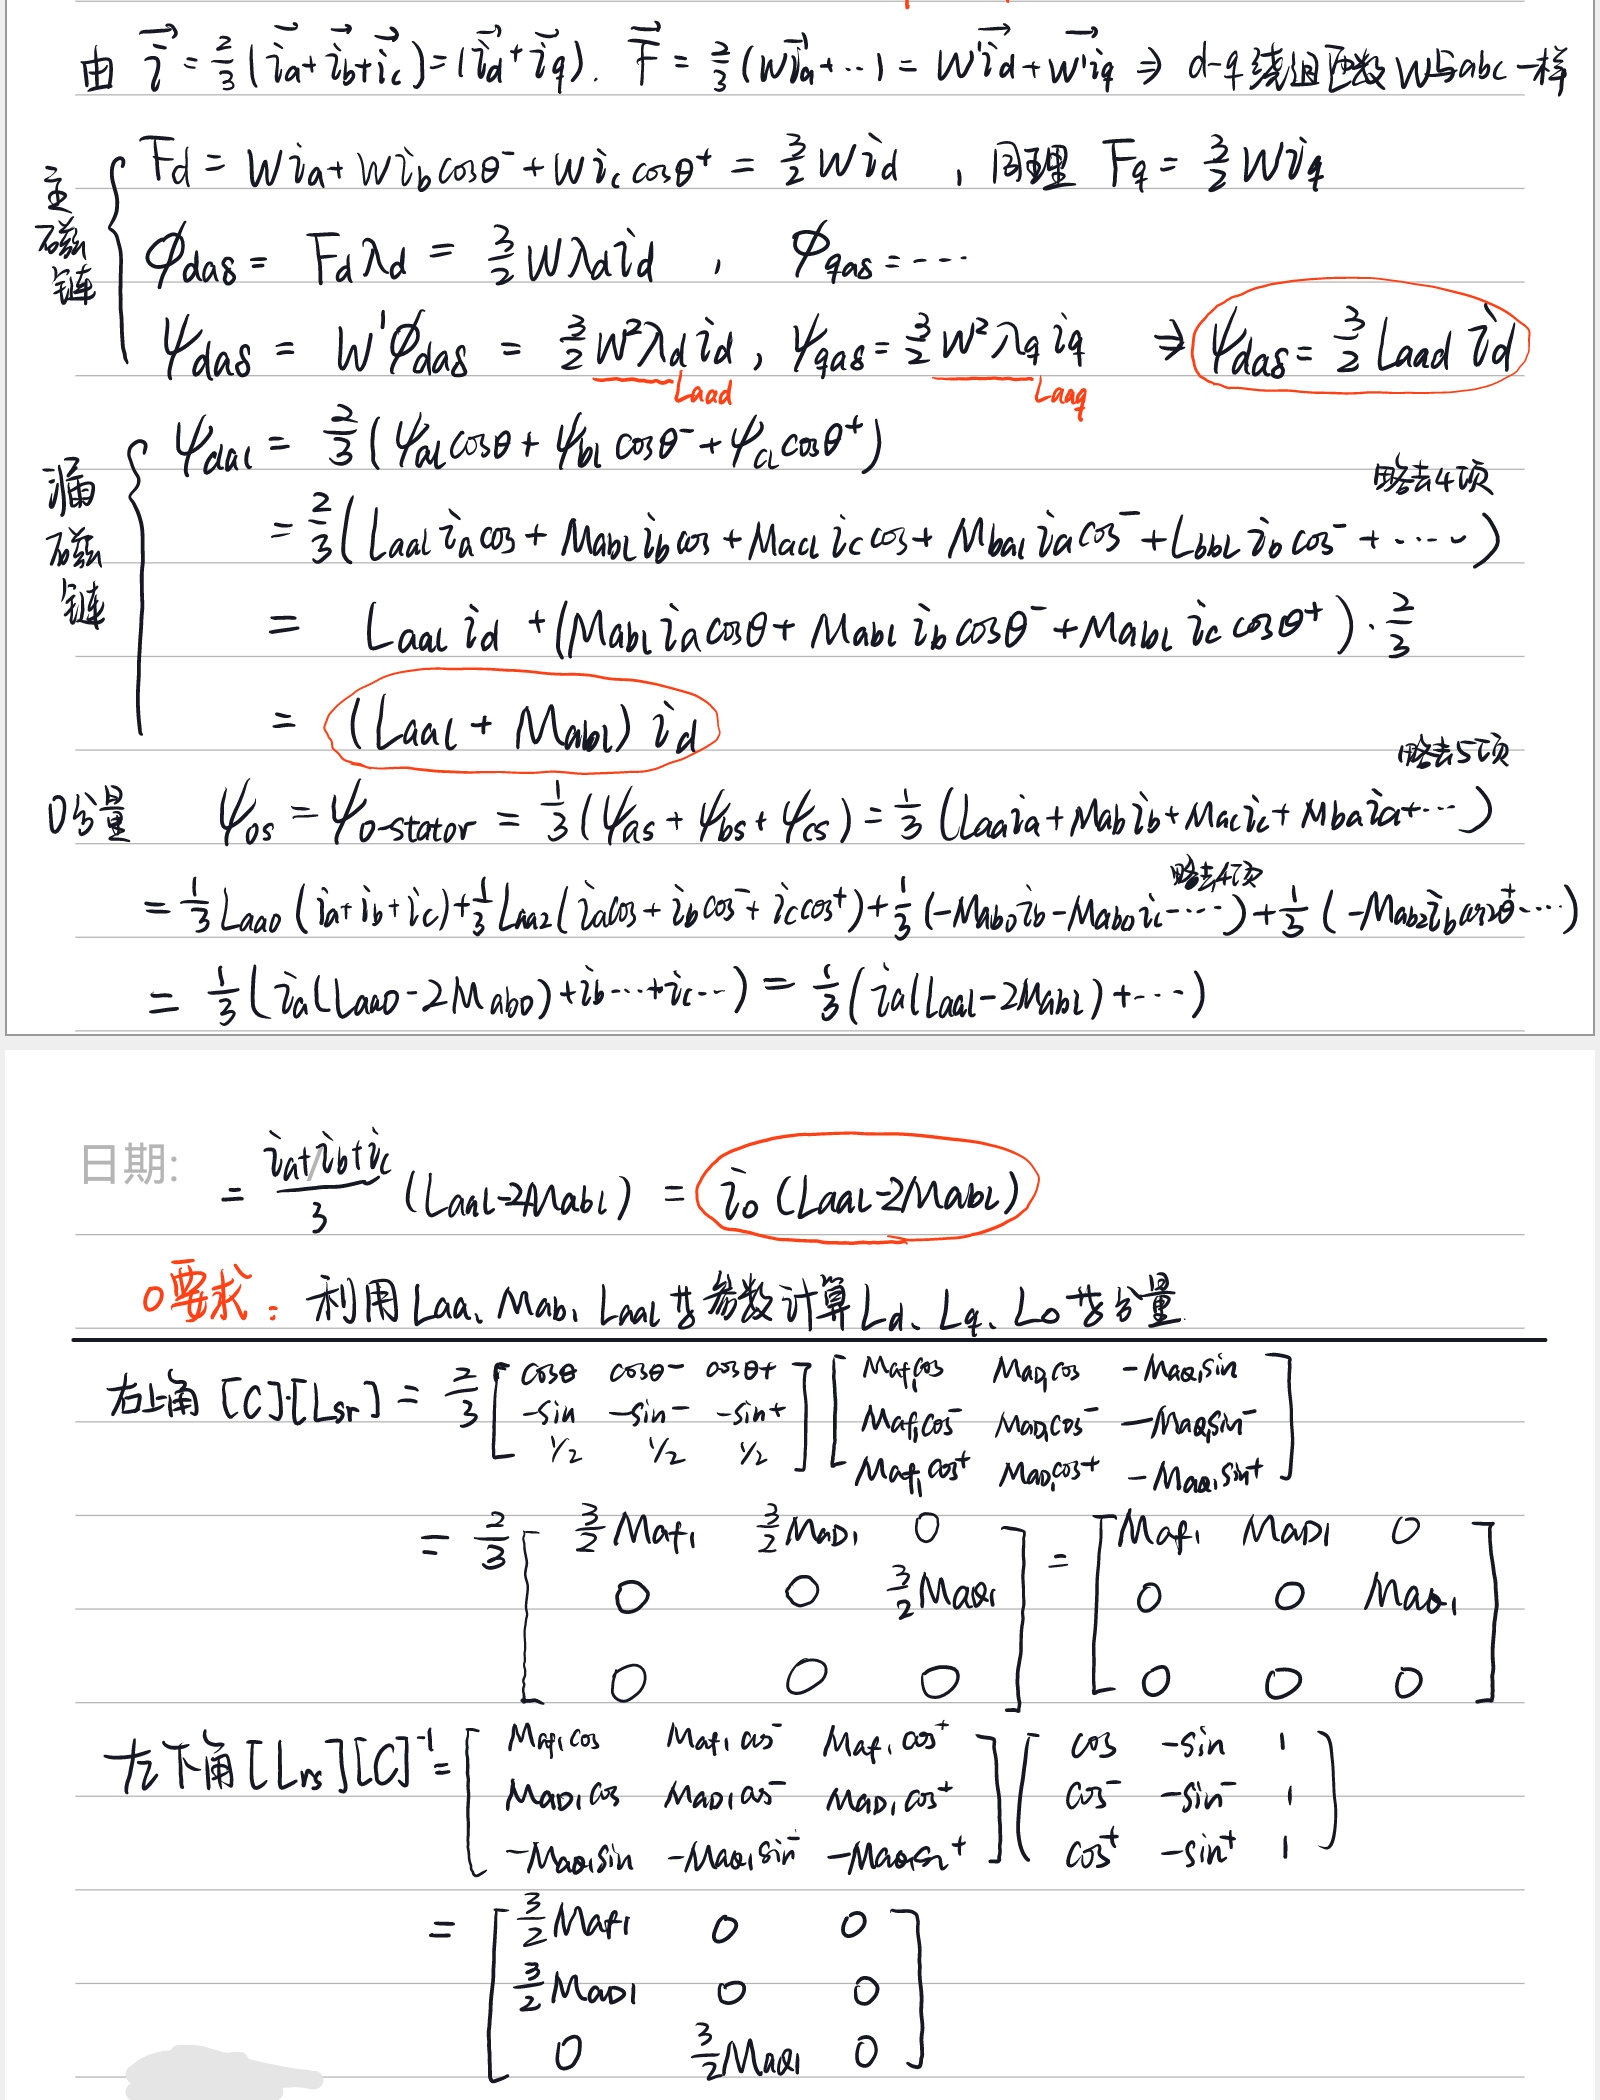 由 i⃗ = 2/3 (i⃗a + i⃗b + i⃗c) = (i⃗d + i⃗q). F⃗ = 2/3 (Wi⃗a + ⋯) = W'i⃗d + W'i⃗q ⇒ d-q绕组匝数W与abc一样
主磁链
Fd = Wia + Wib cosθ⁻ + Wic cosθ⁺ = 3/2 Wid , 同理 Fq = 3/2 Wiq
ϕdaδ = Fdλd = 3/2 Wλdid , ϕqaδ = ⋯
ψdaδ = W'ϕdaδ = 3/2 W²λdid , ψqaδ = 3/2 W²λqiq ⇒ ψdaδ = 3/2 Laad id
Laad Laaq
漏磁链
ψdal = 2/3 (ψal cosθ + ψbl cosθ⁻ + ψcl cosθ⁺)
略去4项
= 2/3 (Laal ia cos + Mabl ib cos + Macl ic cos + Mbal ia cos⁻ + Lbbl ib cos⁻ + ⋯⋯)
= Laal id + (Mabl ia cosθ + Mabl ib cosθ⁻ + Mabl ic cosθ⁺) · 2/3
= (Laal + Mabl) id
略去5项
0分量 ψos = ψo-stator = 1/3 (ψas + ψbs + ψcs) = 1/3 (Laaia + Mabib + Macic + Mbaia + ⋯)
略去4项
= 1/3 Laa0 (ia + ib + ic) + 1/3 Laa2 (iacos + ibcos⁻ + iccos⁺) + 1/3 (-Mab0ib - Mab0ic ⋯⋯) + 1/3 (-Mab2ib cos2θ⁺ ⋯⋯)
= 1/3 (ia(Laa0 - 2Mab0) + ib ⋯ + ic ⋯) = 1/3 (ia(Laal - 2Mabl) + ⋯)
日期:
= (ia + ib + ic)/3 (Laal - 2Mabl) = i0 (Laal - 2Mabl)
○要求: 利用Laa、Mab、Laal 等参数计算Ld、Lq、L0等分量
右上角 [C]·[Lsr] = 2/3 [cosθ cosθ⁻ cosθ⁺ ; -sin -sin⁻ -sin⁺ ; 1/2 1/2 1/2] [Maf1cos MaD1cos -MaQ1sin ; Maf1cos⁻ MaD1cos⁻ -MaQ1sin⁻ ; Maf1cos⁺ MaD1cos⁺ -MaQ1sin⁺]
= 2/3 [3/2 Maf1 3/2 MaD1 0 ; 0 0 3/2 MaQ1 ; 0 0 0] = [Maf1 MaD1 0 ; 0 0 MaQ1 ; 0 0 0]
左下角 [Lrs][C]⁻¹ = [Maf1cos Maf1cos⁻ Maf1cos⁺ ; MaD1cos MaD1cos⁻ MaD1cos⁺ ; -MaQ1sin -MaQ1sin⁻ -MaQ1sin⁺] (cos -sin 1 ; cos⁻ -sin⁻ 1 ; cos⁺ -sin⁺ 1)
= [3/2 Maf1 0 0 ; 3/2 MaD1 0 0 ; 0 3/2 MaQ1 0]